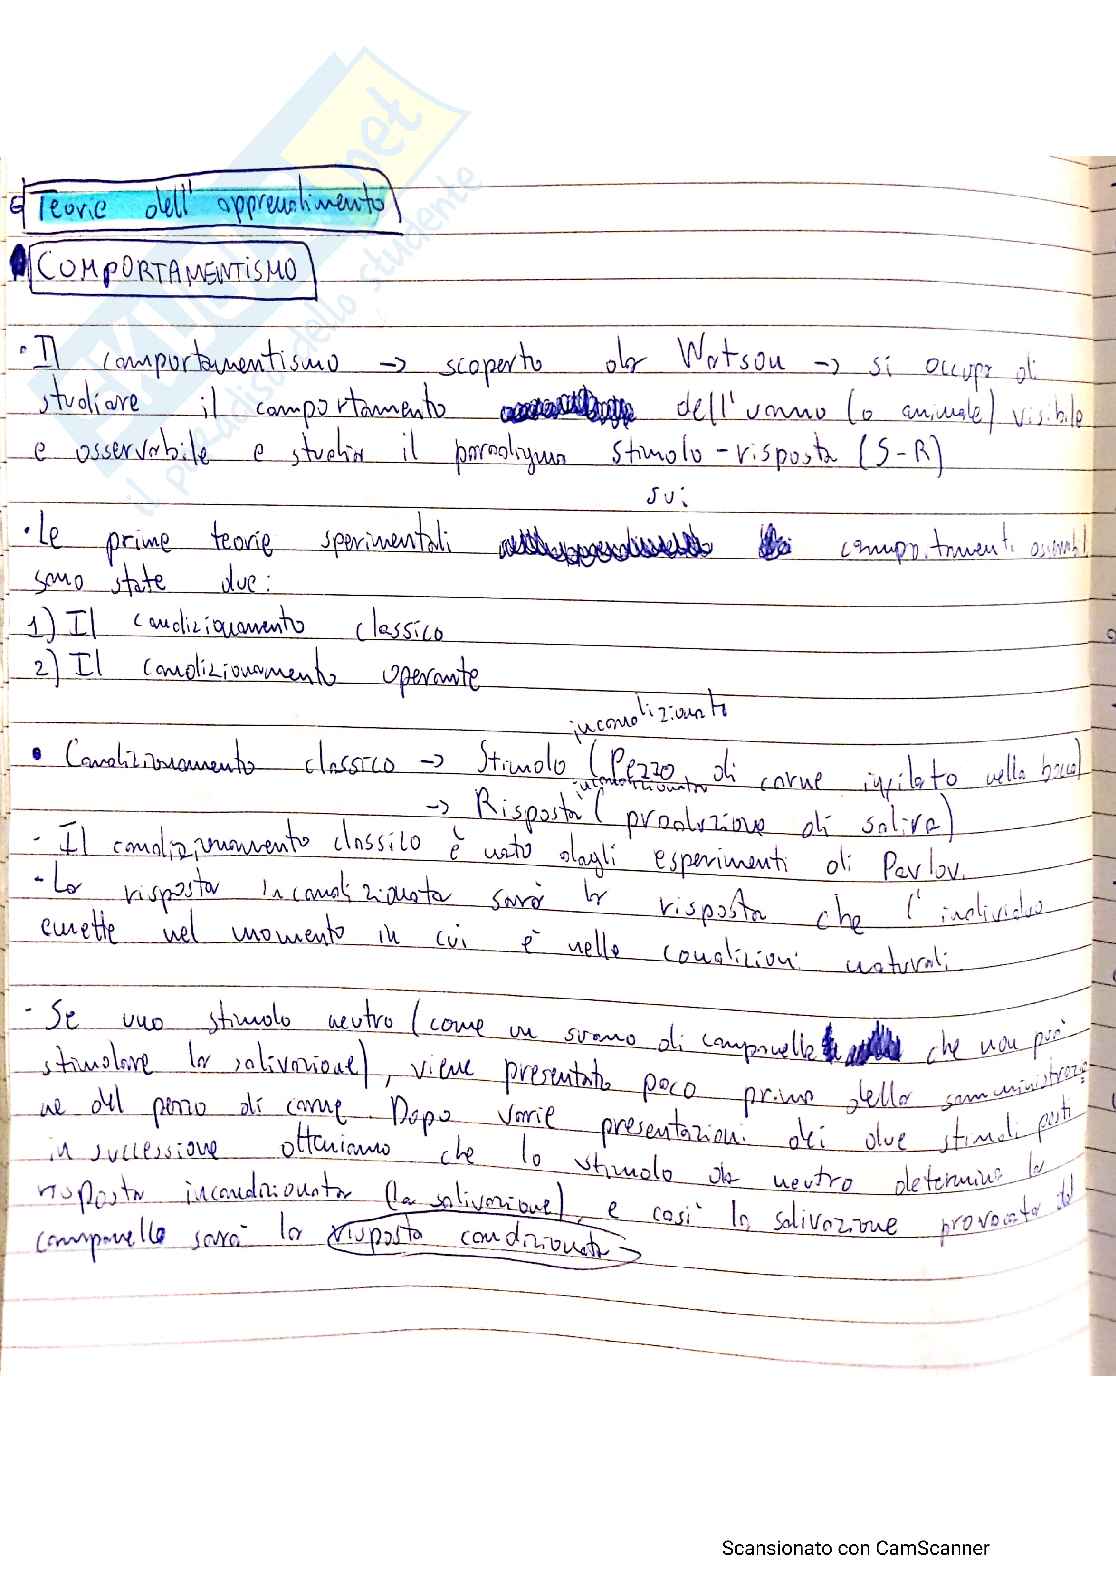 Teorie dell'apprendimento
COMPORTAMENTISMO
· Il comportamentismo -> scoperto da Watson -> si occupa di
studiare il comportamento dell'uomo (o animale) visibile
e osservabile e studia il paradigma stimolo-risposta (S-R)
sui
· Le prime teorie sperimentali comportamenti osservabili
sono state due:
1) Il condizionamento classico
2) Il condizionamento operante
incondizionato
• Condizionamento classico -> Stimolo (Pezzo di carne infilato nella bocca)
incondizionata
-> Risposta (produzione di saliva)
- Il condizionamento classico è nato dagli esperimenti di Pavlov.
- La risposta incondizionata sarà la risposta che l'individuo
emette nel momento in cui è nelle condizioni naturali
- Se uno stimolo neutro (come un suono di campanello che non può
stimolare la salivazione), viene presentato poco prima della somministrazio
ne del pezzo di carne. Dopo varie presentazioni dei due stimoli posti
in successione otteniamo che lo stimolo da neutro determina la
risposta incondizionata (la salivazione), e così la salivazione provocata dal
campanello sarà la risposta condizionata
il paradiso dello studente
Scansionato con CamScanner